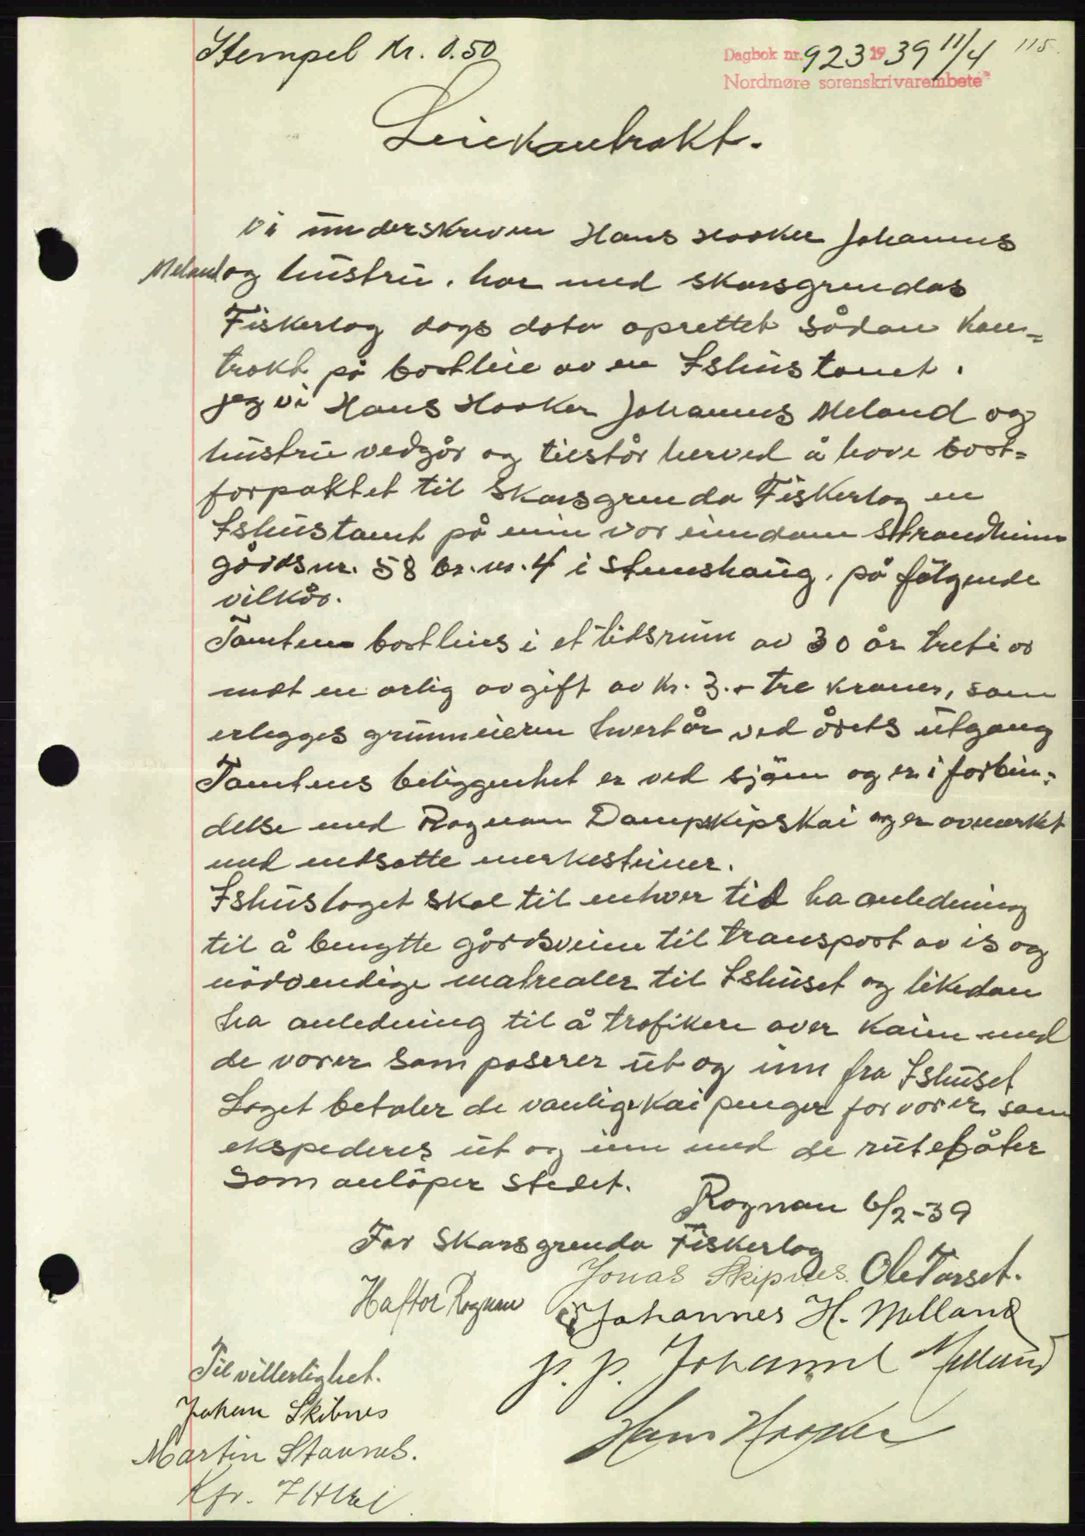 Stempel Kr. 0.50
Dagbok nr. 923 1939 11/4 115.
Nordmøre sorenskrivarembete
Leiekontrakt.
Vi underskreven Hans Hooker Johannes
Meland og hustru. har med Skarsgrendas
Fiskerlag dags dato oprettet sådan kon=
trakt på bortleie av en Ishustomt.
Jeg vi Hans Hooker Johannes Meland og
hustru vedgår og tilstår herved å have bort=
forpaktet til Skarsgrenda Fiskerlag en
Ishustomt på min vor eiendom Strandheim
gårdsnr. 58 br.nr. 4 i Stemshaug, på følgende
vilkår.
Tomten bortleies i et tidsrum av 30 år treti år
mot en årlig avgift av kr. 3.- tre kroner, som
erlegges grunneieren hvert år ved årets utgang
Tomtens beliggenhet er ved sjøen og er i forbin=
delse med Rognan Dampskipskai og er avmerket
med nedsatte merkesteiner.
Ishuslaget skal til enhver tid ha anledning
til å benytte gårdsveien til transport av is og
nødvendige matrealer til Ishuset og likedan
ha anledning til å trafikere over kaien med
de varer som paserer ut og inn fra Ishuset
Laget betaler de vanlige kaipenger for varer som
ekspederes ut og inn med de rutebåter
som anløper stedet.
Rognan 6/2-39
For Skarsgrenda Fiskerlag
Jonas Skipnes. Ole Torset.
Haftor Rognan
Johannes H. Melland
p. p. Johannes Melland
Hans Hooker
Til vitterlighet.
Johan Skibnes
Martin Stavnes.
Kfr.